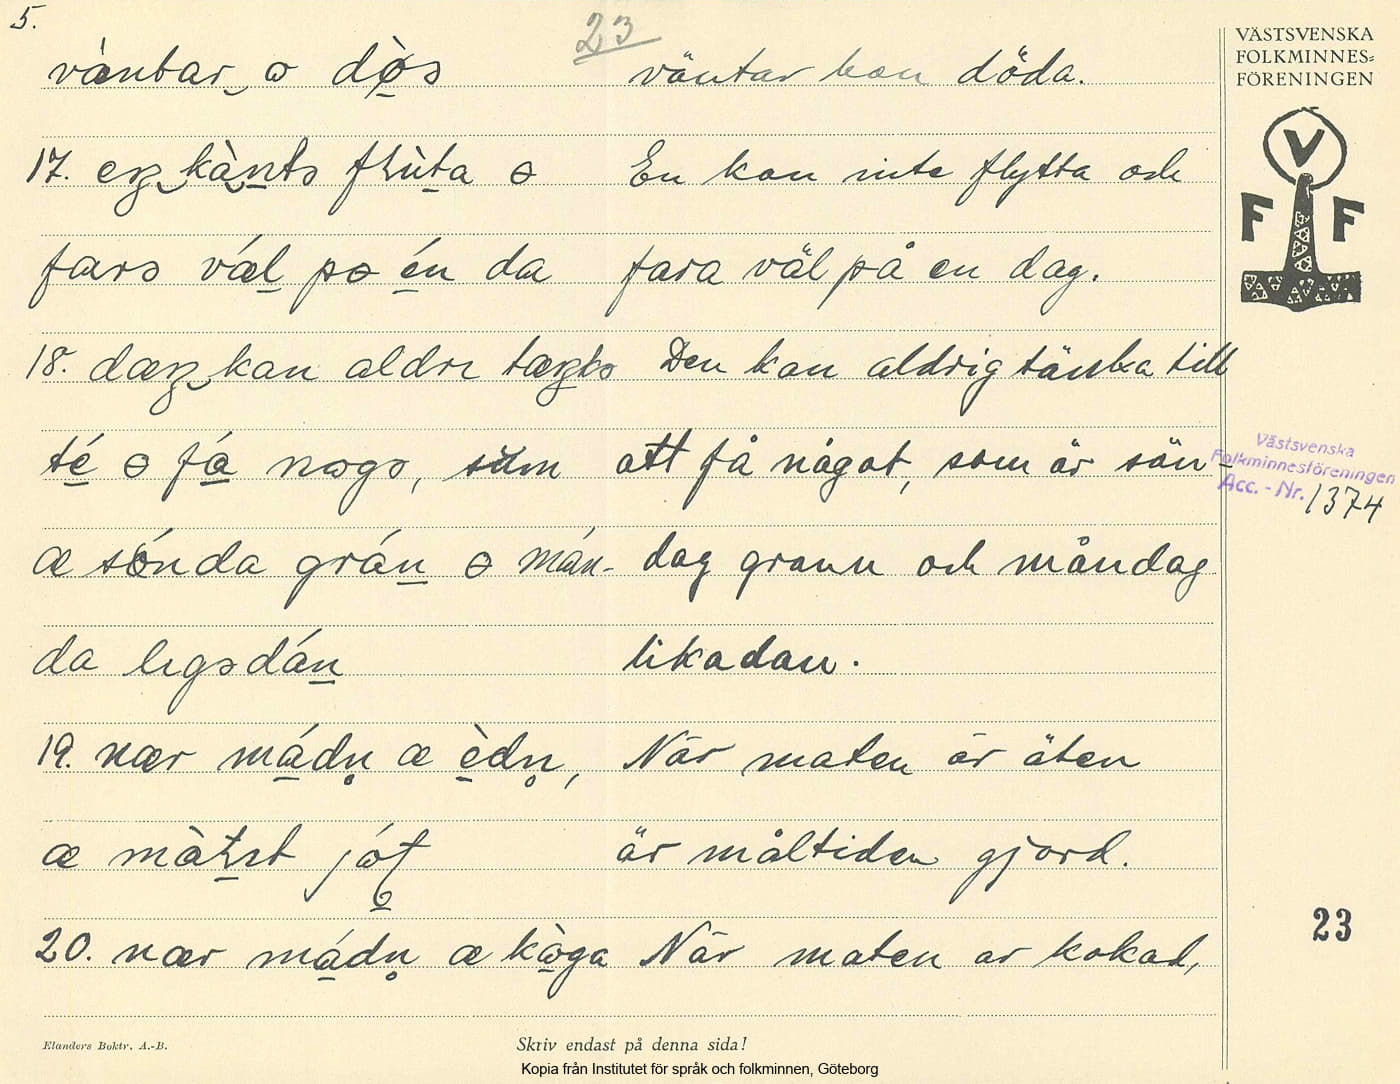 5.
23
vȧ̀ntar o dø̀s väntar han döda.
17. eŋ kànts flùta o En kan inte flytta och
fars vǽl po én da fara väl på en dag.
18. dæŋ kan aldrı tæŋks Den kan aldrig tänka till
té o fá nogo, sum att få något, som är sön-
æ sónda grán o mán- dag grann och måndag
da lıgsdán likadan.
19. nær mádn̥ æ èdn̥, När maten är äten
æ màtıt jóɽ är måltiden gjord.
20. nær mádn̥ æ kòga När maten är kokad,
VÄSTSVENSKA
FOLKMINNES=
FÖRENINGEN
V
F F
Västsvenska
Folkminnesföreningen
Acc. - Nr. 1374
23
Elanders Boktr. A.-B.
Skriv endast på denna sida!
Kopia från Institutet för språk och folkminnen, Göteborg